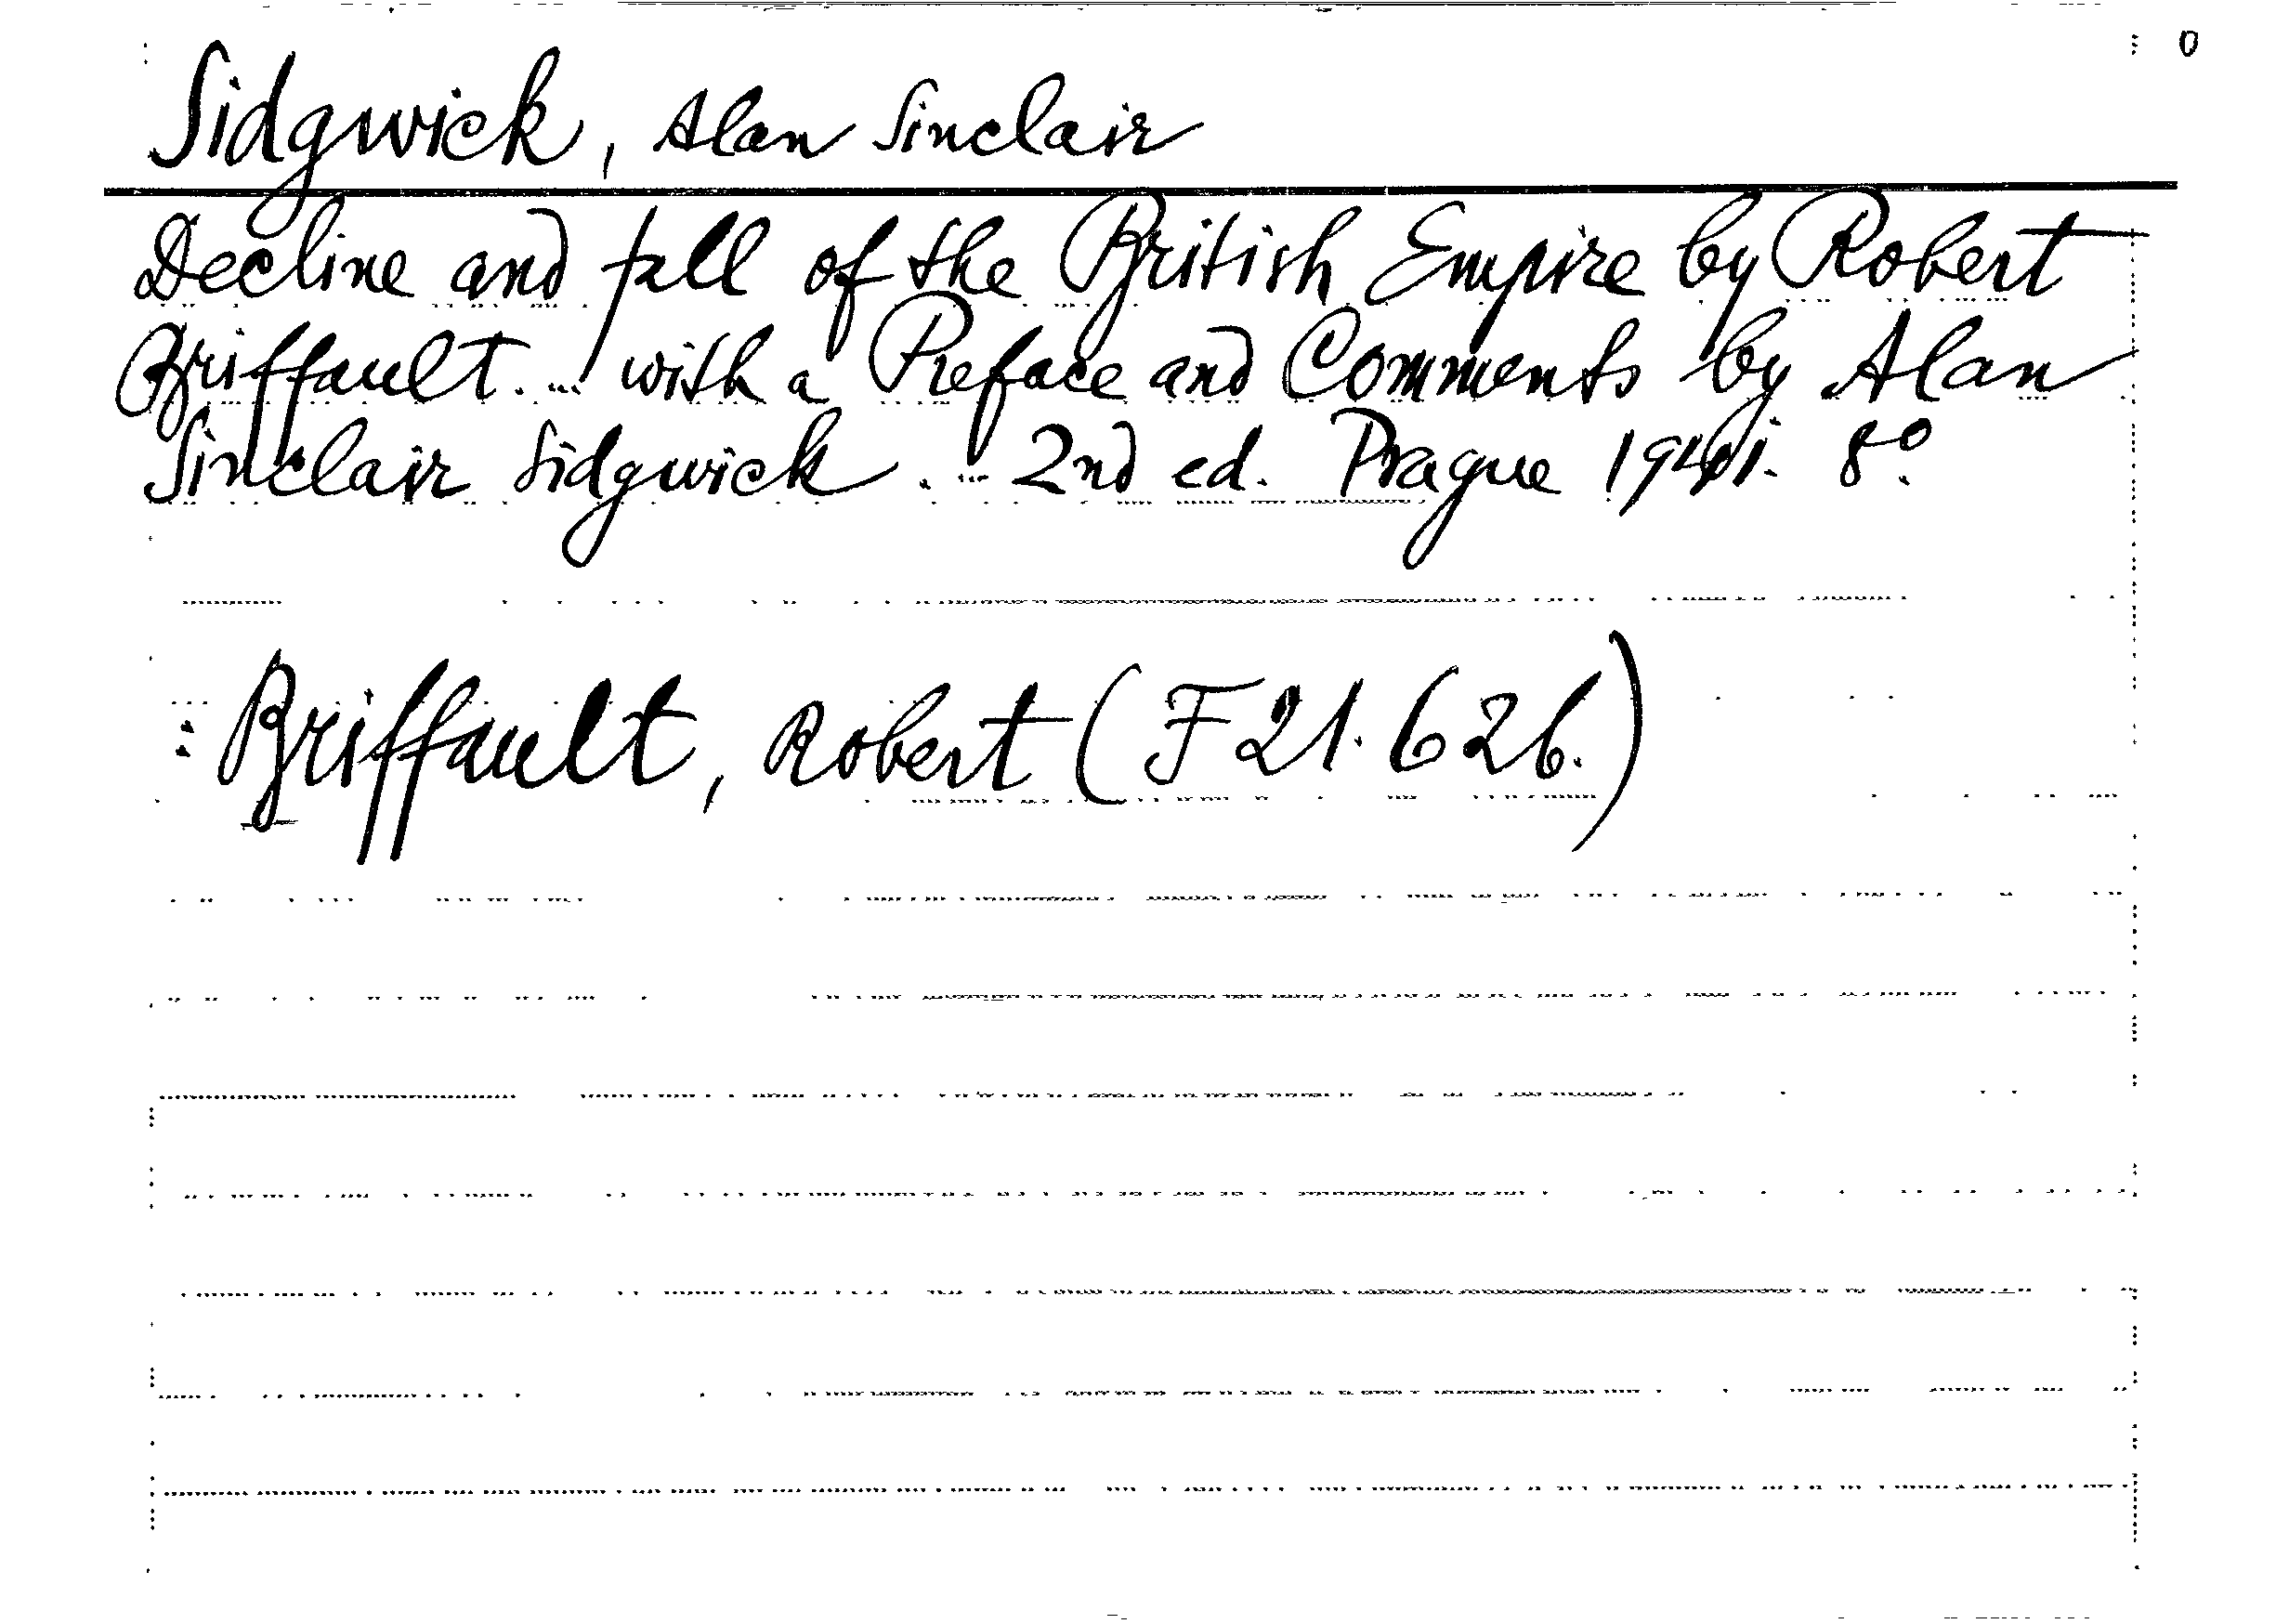 0
Sidgwick, Alan Sinclair
Decline and fall of the British Empire by Robert
Briffault. ... with a Preface and Comments by Alan
Sinclair Sidgwick ... 2nd ed. Prague 1941. 8°.
: Briffault, Robert (F 21.626.)